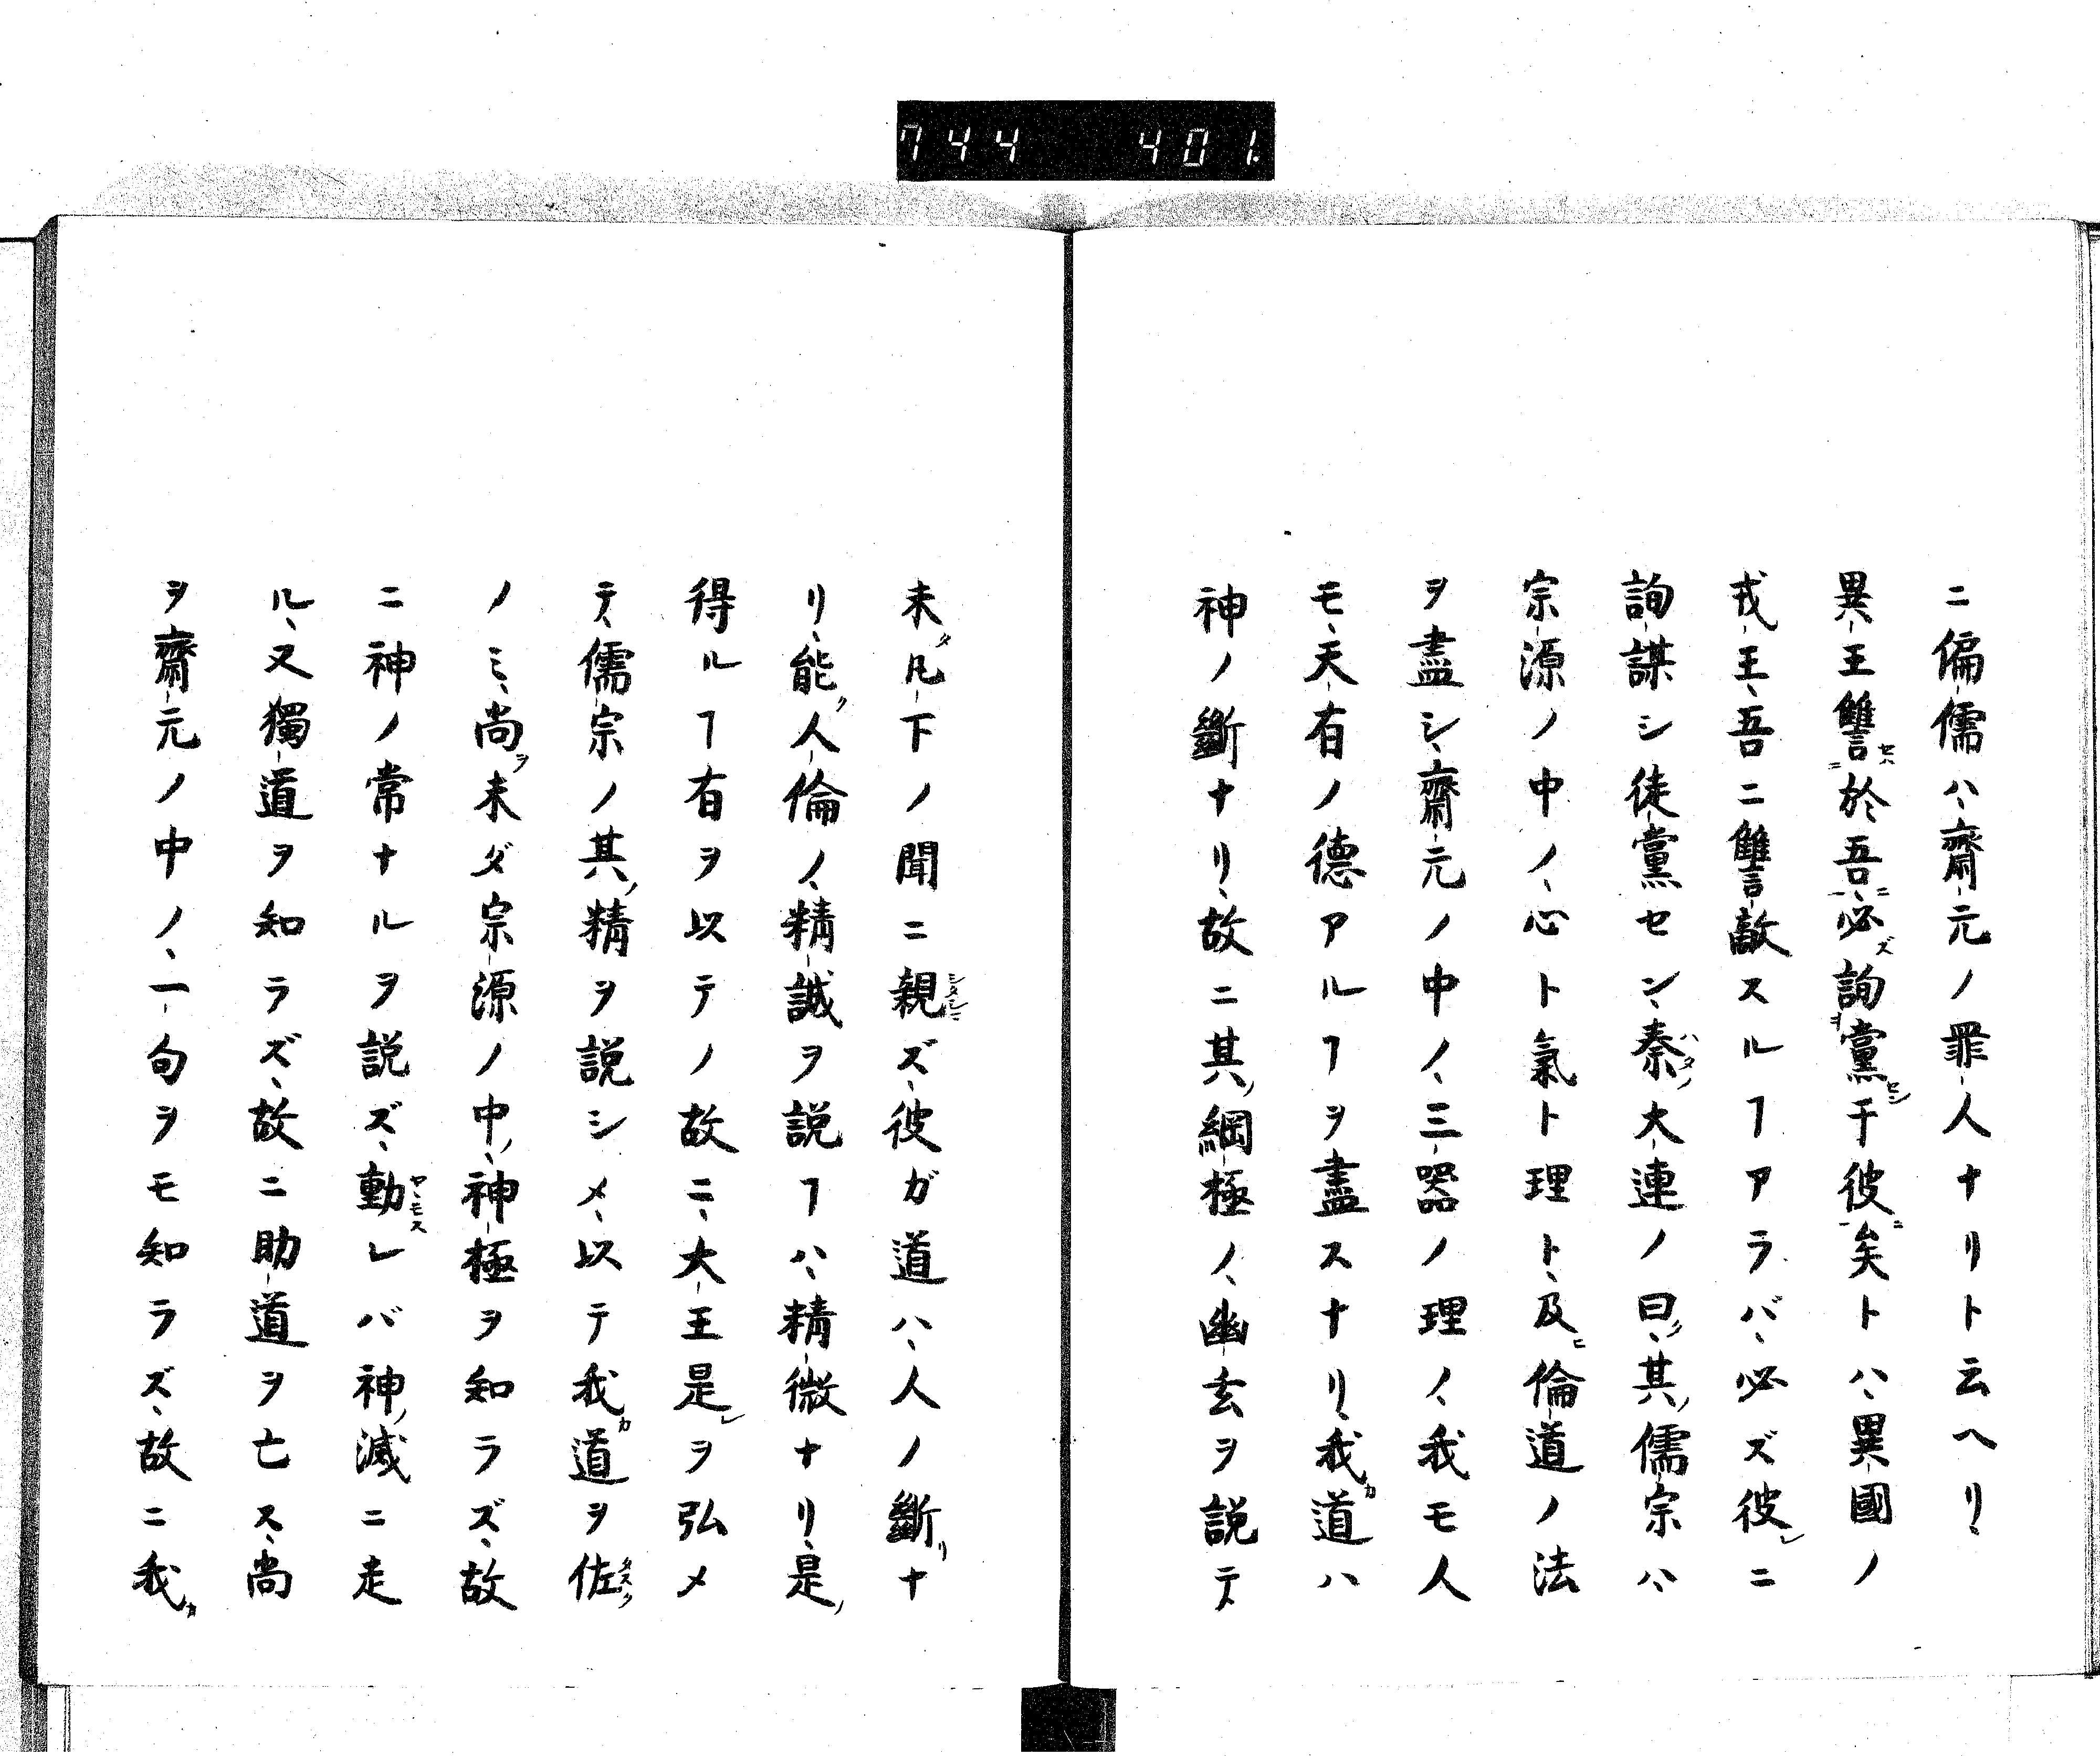 744 401
ニ偏儒ハ、齋元ノ罪人ナリト云ヘリ、
異王讐於吾、必詢黨干彼矣トハ、異國ノ
戎王、吾ニ讐敵スルヿアラバ、必ズ彼ニ
詢謀シ徒黨セン、秦大連ノ曰、其儒宗ハ、
宗源ノ中ノ、心ト氣ト理ト、及倫道ノ法
ヲ盡シ、齋元ノ中ノ、三器ノ理ノ、我モ人
モ、天有ノ德アルヿヲ盡スナリ、我道ハ
神ノ斷ナリ、故ニ其綱極ノ、幽玄ヲ説テ、
未凡下ノ聞ニ親ズ、彼ガ道ハ、人ノ斷ナ
リ、能人倫ノ、精誠ヲ説ヿハ、精微ナリ、是
得ルヿ有ヲ以テノ故ニ、大王是ヲ弘メ
テ、儒宗ノ其精ヲ説シメ、以テ我道ヲ佐
ノミ、尚未ダ宗源ノ中、神極ヲ知ラズ、故
ニ神ノ常ナルヲ説ズ、動レバ神滅ニ走
ル、又獨道ヲ知ラズ、故ニ助道ヲ亡ス、尚
ヲ齋元ノ中ノ、一句ヲモ知ラズ、故ニ我